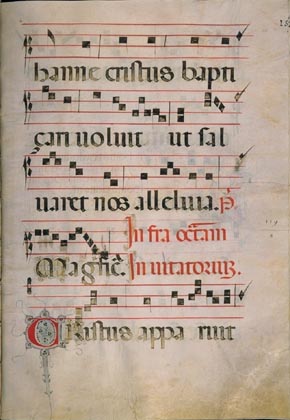 hanne cristus bapti
çari uoluit ut sal
uaret nos alleluia. P̃.
In fra octam
Magnific̃. In uitatoriũ.
Cristus appa ruit